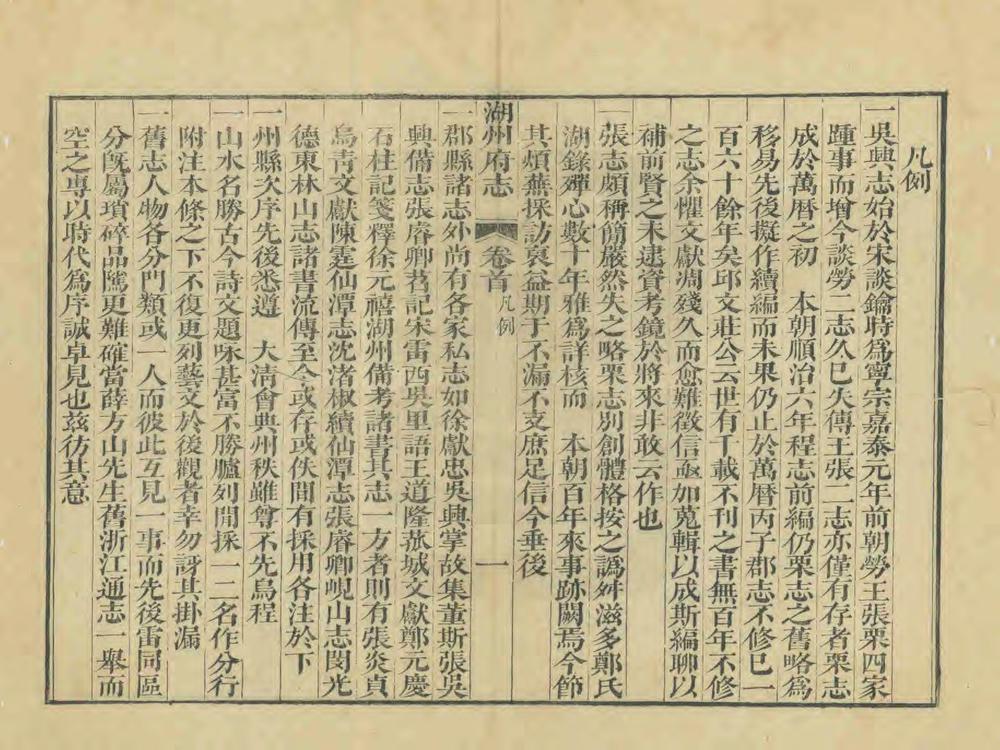 凡例
一吳興志始於宋談鑰時爲寧宗嘉泰元年前朝勞王張栗四家
踵事而增今談勞二志久巳失傳王張二志亦僅有存者栗志
成於萬曆之初　本朝順治六年程志前編仍栗志之舊略爲
移易先後擬作續編而未果仍止於萬曆丙子郡志不修巳一
百六十餘年矣邱文莊公云世有千載不刊之書無百年不修
之志余懼文獻凋殘久而愈難徵信亟加蒐輯以成斯編聊以
補前賢之未逮資考鏡於將來非敢云作也
一張志頗稱簡嚴然失之略栗志別創體格按之譌舛滋多鄭氏
湖錄殫心數十年雅爲詳核而　本朝百年來事跡闕焉今節
其煩蕪採訪裒益期于不漏不支庶足信今垂後
湖州府志　卷首　凡例　一
一郡縣諸志外尚有各家私志如徐獻忠吳興掌故集董斯張吳
興備志張睿卿苕記宋雷西吳里語王道隆菰城文獻鄭元慶
石柱記箋釋徐元禧湖州備考諸書其志一方者則有張炎貞
烏青文獻陳霆仙潭志沈渚椒續仙潭志張睿卿峴山志閔光
德東林山志諸書流傳至今或存或佚間有採用各注於下
一州縣次序先後悉遵　大清會典州秩雖尊不先烏程
一山水名勝古今詩文題咏甚富不勝臚列閒採一二名作分行
附注本條之下不復更列藝文於後觀者幸勿訝其掛漏
一舊志人物各分門類或一人而彼此互見一事而先後雷同區
分旣屬瑣碎品隲更難確當薛方山先生舊浙江通志一舉而
空之專以時代爲序誠卓見也茲彷其意